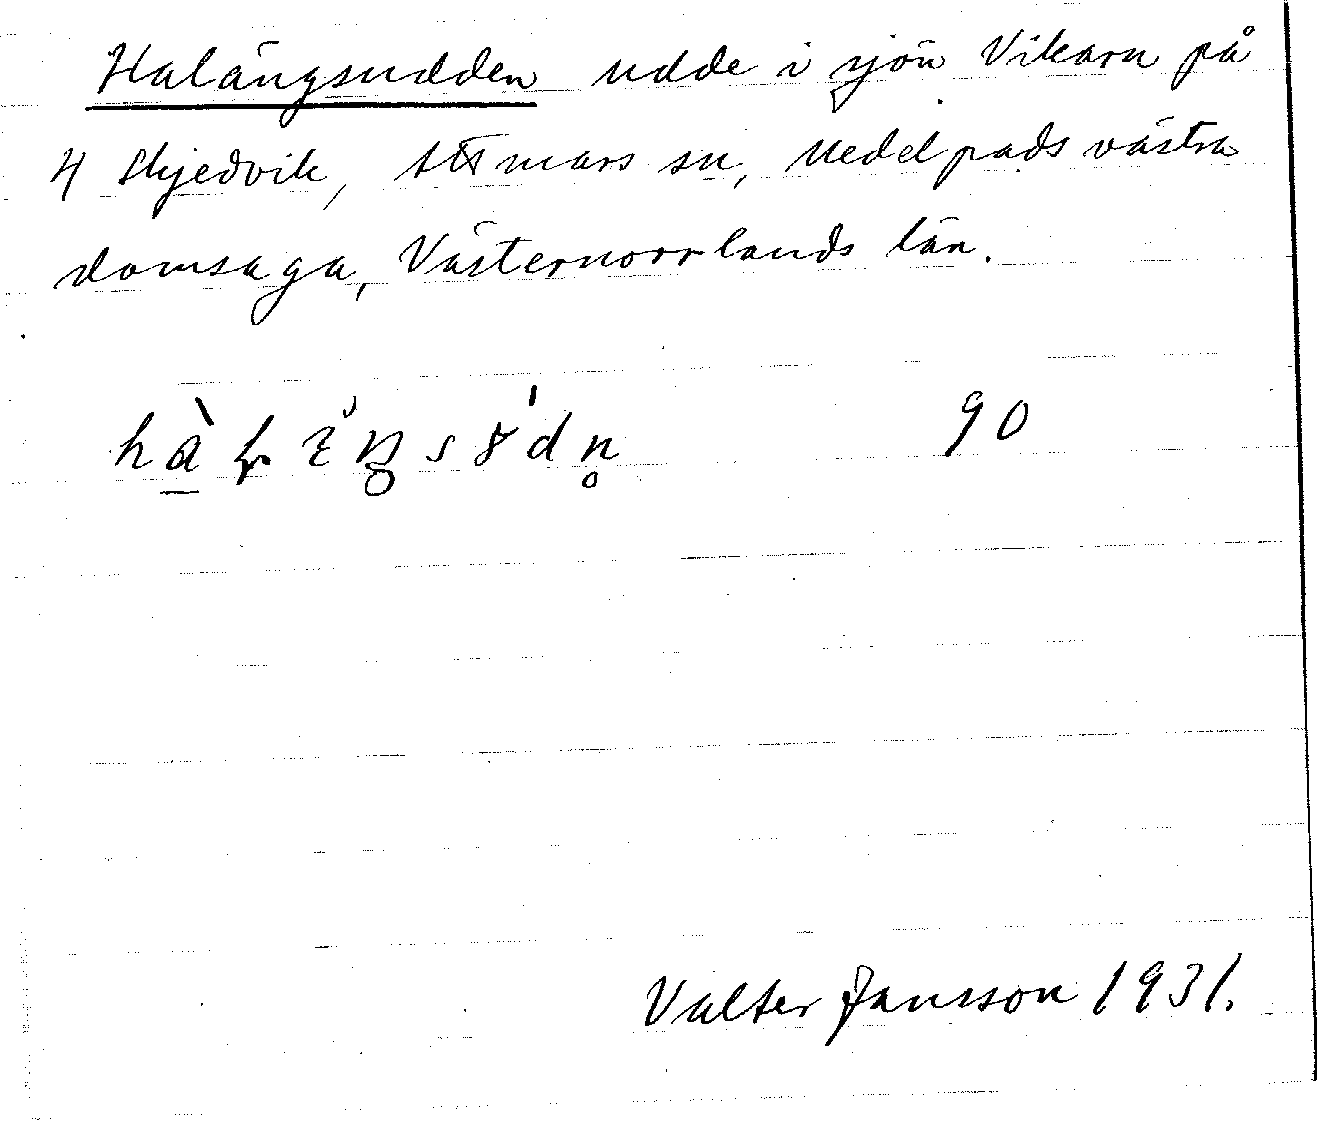 Halängsudden udde i sjön Vikarn på
4 Skjedvik, Attmars sn, Medelpads västra
domsaga, Västernorrlands län.
90
Valter Jansson 1931.